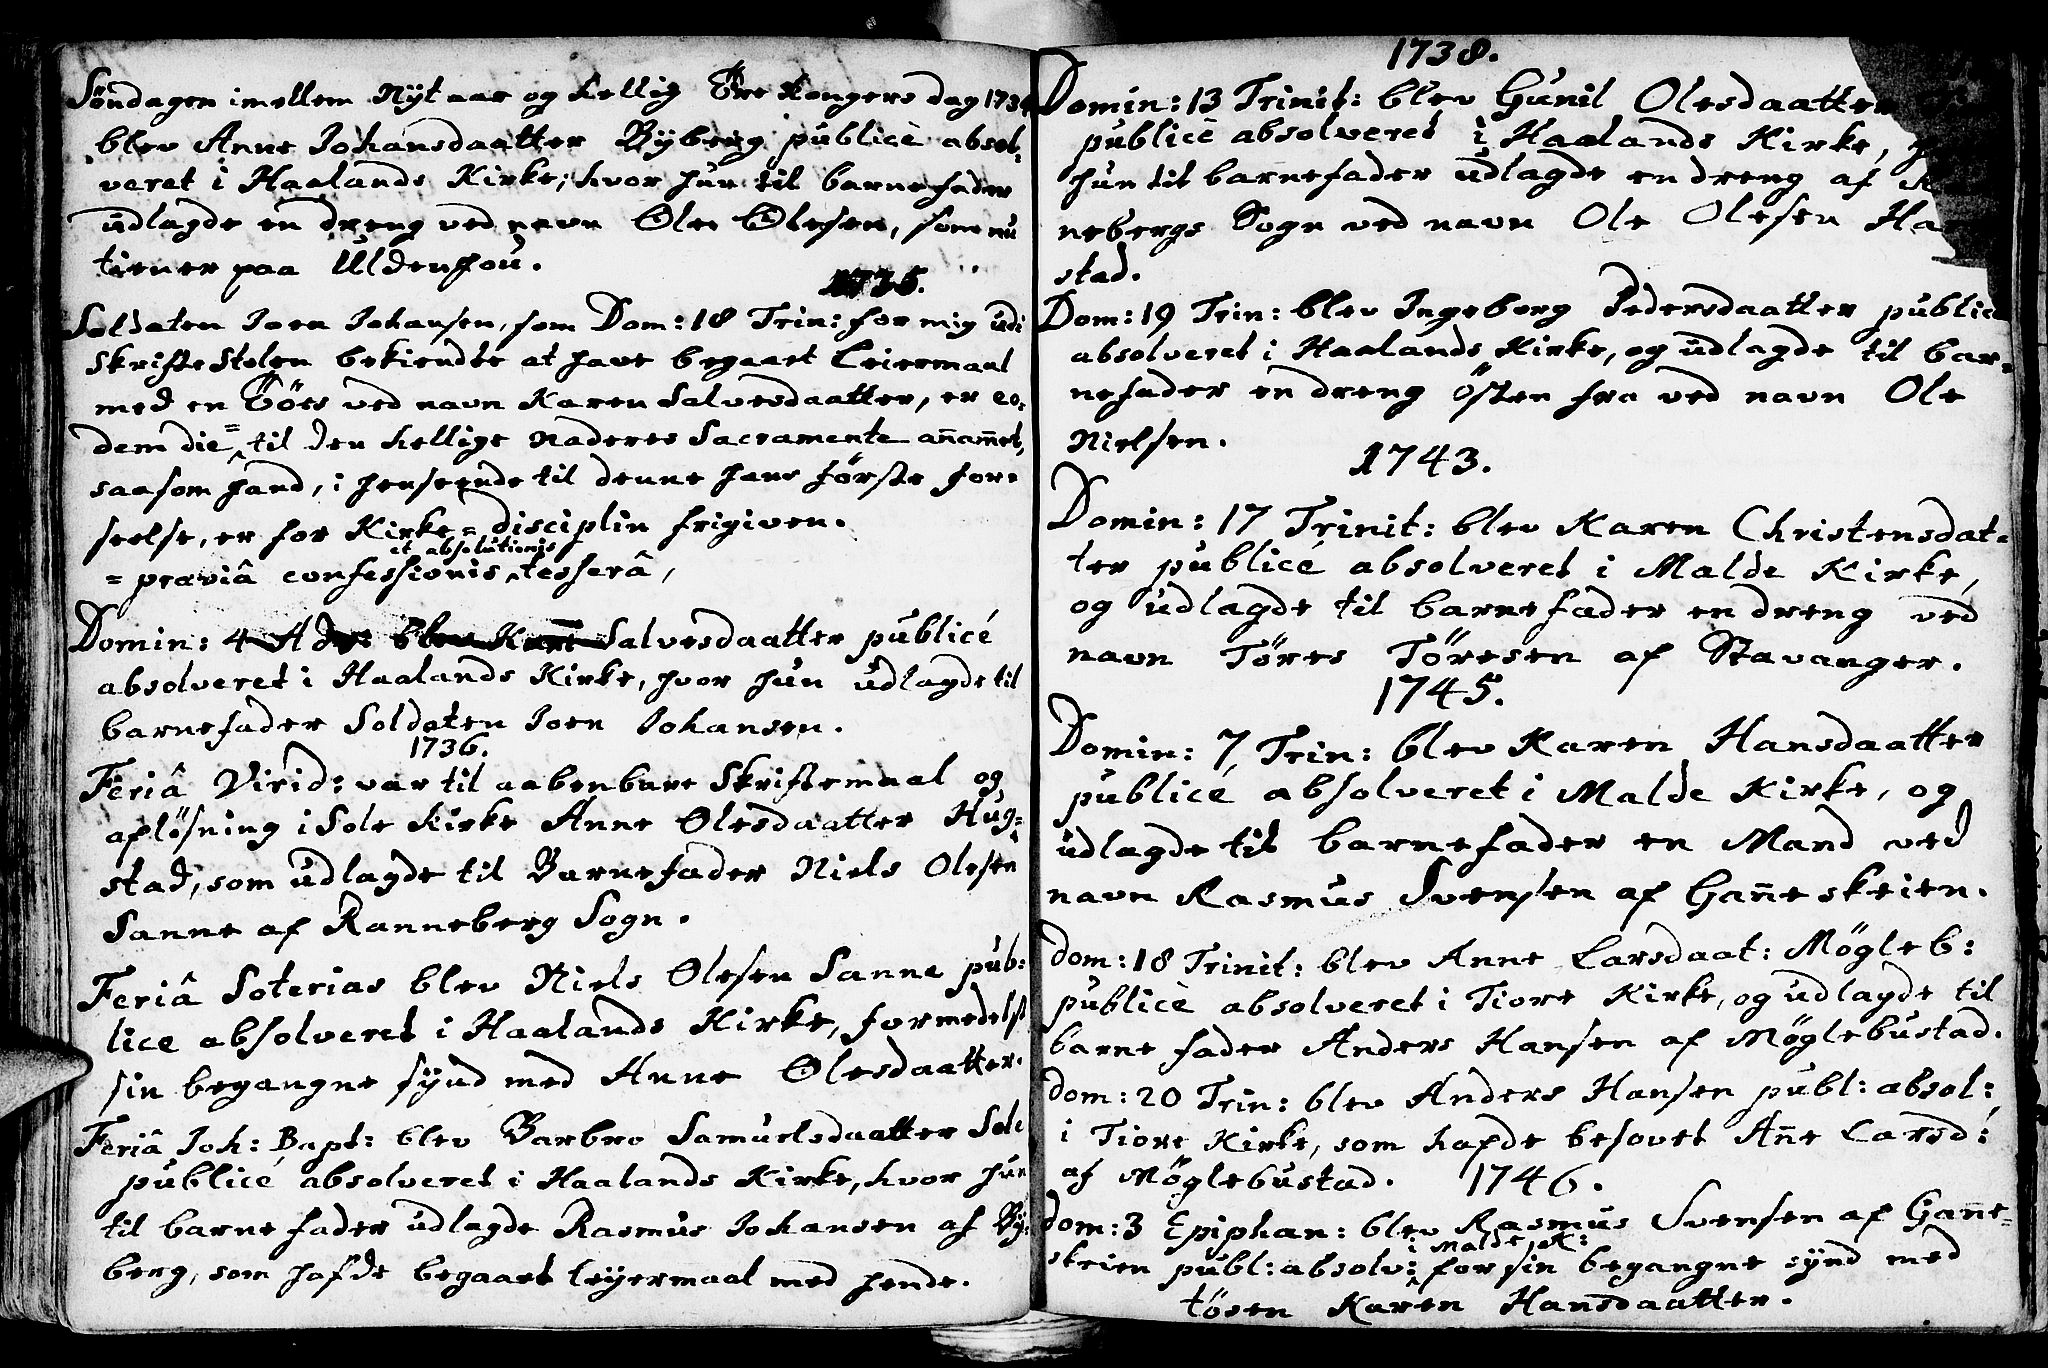 Söndagen imellem Nÿt aar og hellig Tre Kongers dag 1734
blev Anne Johansdaatter Rÿberg publicè absol:
veret i Haalands Kirke; hvor hun til barnefader
udlagde en dreng ved navn Ole Olesen, som nu
tiener paa Uldenhou.
1735.
Soldaten Joen Johansen, som Dom: 18 Trin: for mig udi
Skriftestolen bekiendte at have begaaet Leiermaal
med en Töes ved navn Karen Salvesdaatter, er eo-
dem die = til den hellige Naderes Sacramente anammet,
saasom hand, i henseende til denne hans förste for-
seelse, er for Kirke = disciplin frigiven.
et absolutionis
= præviâ confessionis tesserâ,
Domin: 4 Adv: blev Karen Salvesdaatter publicé
absolveret i Haalands Kirke, hvor hun udlagde til
barnefader Soldaten Joen Johansen.
1736.
Feriâ Virid: var til aabenbare Skriftemaal og
aflösning i Sole Kirke Anne Olesdaatter Hug=
stad, som udlagde til Barnefader Niels Olesen
Sanne af Ranneberg Sogn.
Feriâ Soterias blev Niels Olesen Sanne pub:
lice absolveret i Haalands Kirke, formedelst
sin begangne sÿnd med Anne Olesdaatter.
Feriâ Joh: Bapt: blev Barbro Samuelsdaatter Sole
publicé absolveret i Haalands Kirke, hvor hun
til barnefader udlagde Rasmus Johansen af Rÿ-
berg, som hafde begaaet leÿermaal med hende.
1738.
Domin: 13 Trinit: blev Gunil Olesdaatter
publicè absolveret i Haalands Kirke,
hun til barnefader udlagde en dreng af
nebergs Sogn ved navn Ole Olesen Ha
stad.
Dom: 19 Trin: blev Ingeborg Pedersdaatter public
absolveret i Haalands Kirke, og udlagde til bar=
nefader en dreng östen fra ved navn Ole
Nielsen.
1743.
Domin: 17 Trinit: blev Karen Christensdat-
ter publicé absolveret i Malde Kirke,
og udlagde til barnefader en dreng ved
navn Töres Töresen af Stavanger.
1745.
Domin: 7 Trin: blev Karen Hansdaatter
publicé absolveret i Malde Kirke, og
udlagde til barnefader en Mand ved
navn Rasmus Svensen af Ganneskeien.
dom: 18 Trinit: blev Anne Larsdaat: Mögleb:
publicè absolveret i Tiore Kirke, og udlagde til
barne fader Anders Hansen af Möglebustad.
dom: 20 Trin: blev Anders Hansen publ: absol:
i Tiore Kirke, som hafde besovet Anne Larsd:
af Möglebustad. 1746.
dom: 3 Epiphan: blev Rasmus Svensen af Ganne=
i Malde K:
skeien publ: absolv: for sin begangne sÿnd med
tösen Karen Hansdaatter.